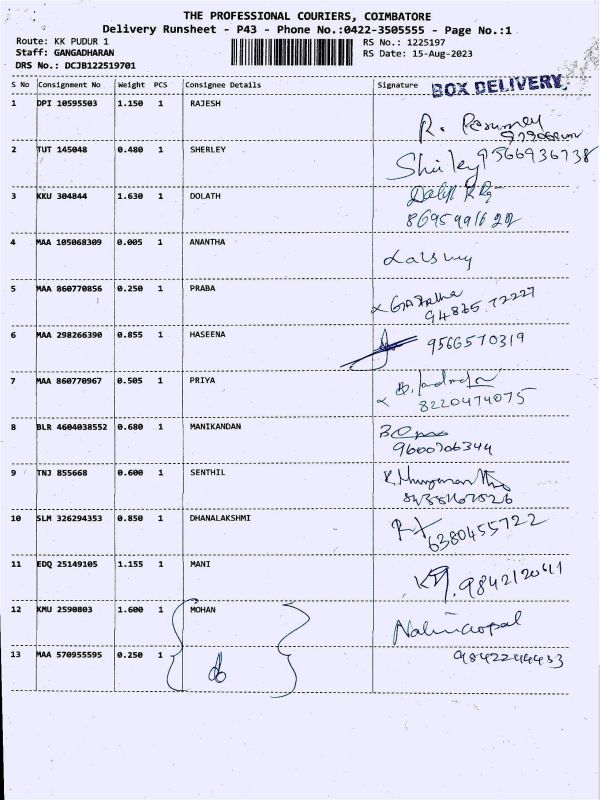 THE PROFESSIONAL COURIERS, COIMBATORE
Delivery Runsheet - P43 - Phone No.:0422-3505555 - Page No.:1
Route: KK PUDUR 1
RS No.: 1225197
Staff: GANGADHARAN
RS Date: 15-Aug-2023
DRS No.: DCJB122519701
S No Consignment No Weight PCS Consignee Details Signature BOX DELIVERY
1 DPI 10595503 1.150 1 RAJESH
R.
2 TUT 145048 0.480 1 SHERLEY
Shirley 9566936738
3 KKU 304844 1.630 1 DOLATH
4 MAA 105068309 0.005 1 ANANTHA
5 MAA 860770856 0.250 1 PRABA
94865 72227
6 MAA 298266390 0.855 1 HASEENA
9566570319
7 MAA 860770967 0.505 1 PRIYA
8220474075
8 BLR 4604038552 0.680 1 MANIKANDAN
9600706344
9 TNJ 855668 0.600 1 SENTHIL
10 SLM 326294353 0.850 1 DHANALAKSHMI
6380455722
11 EDQ 25149105 1.155 1 MANI
9842120411
12 KMU 2590803 1.600 1 MOHAN
13 MAA 570955595 0.250 1
9842244433